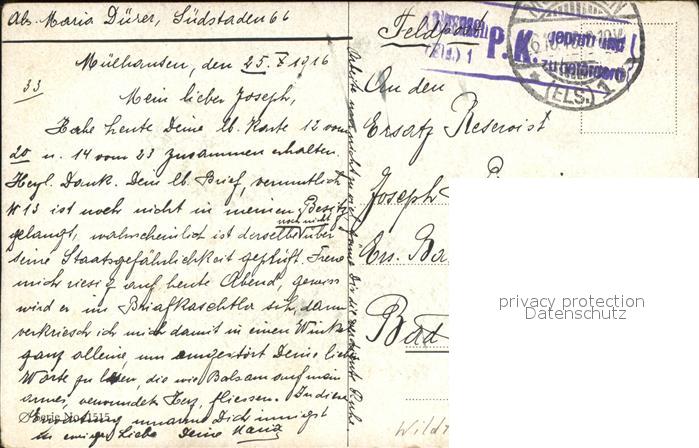 Abs. Maria Dürer, Südstaden 66
Mülhausen, den 25. 7 1916
33
Mein lieber Joseph,
Habe heute Deine lb. Karte 12 vom
20 u. 14 vom 23 zusammen erhalten.
Herzl. Dank. Dein lb. Brief, vermutlich
N 13 ist noch nicht in meinen Besitz
noch nicht
gelangt, wahrscheinlich ist derselbe über
seine Staatsgefährlichkeit geprüft. Freue
mich riesig auf heute Abend, gewiss
wird er im Briefkaschtla sich, dann
verkriech ich mich damit in einen Winkel
ganz alleine um ungestört Deine liebe
Worte zu lesen, die wie Balsam auf mein
armes, verwundetes Herz, fliessen. In dieser
umarme Dich innigst
in ewiger Liebe Deine Maria
Serie No. 1515
Feldpost
P.K. geprüft und
zu befördern
(Els.) 1
(ELS.) 1
An den
Ersatz Reservist
Joseph
Ers. Ba
Bad
privacy protection
Datenschutz